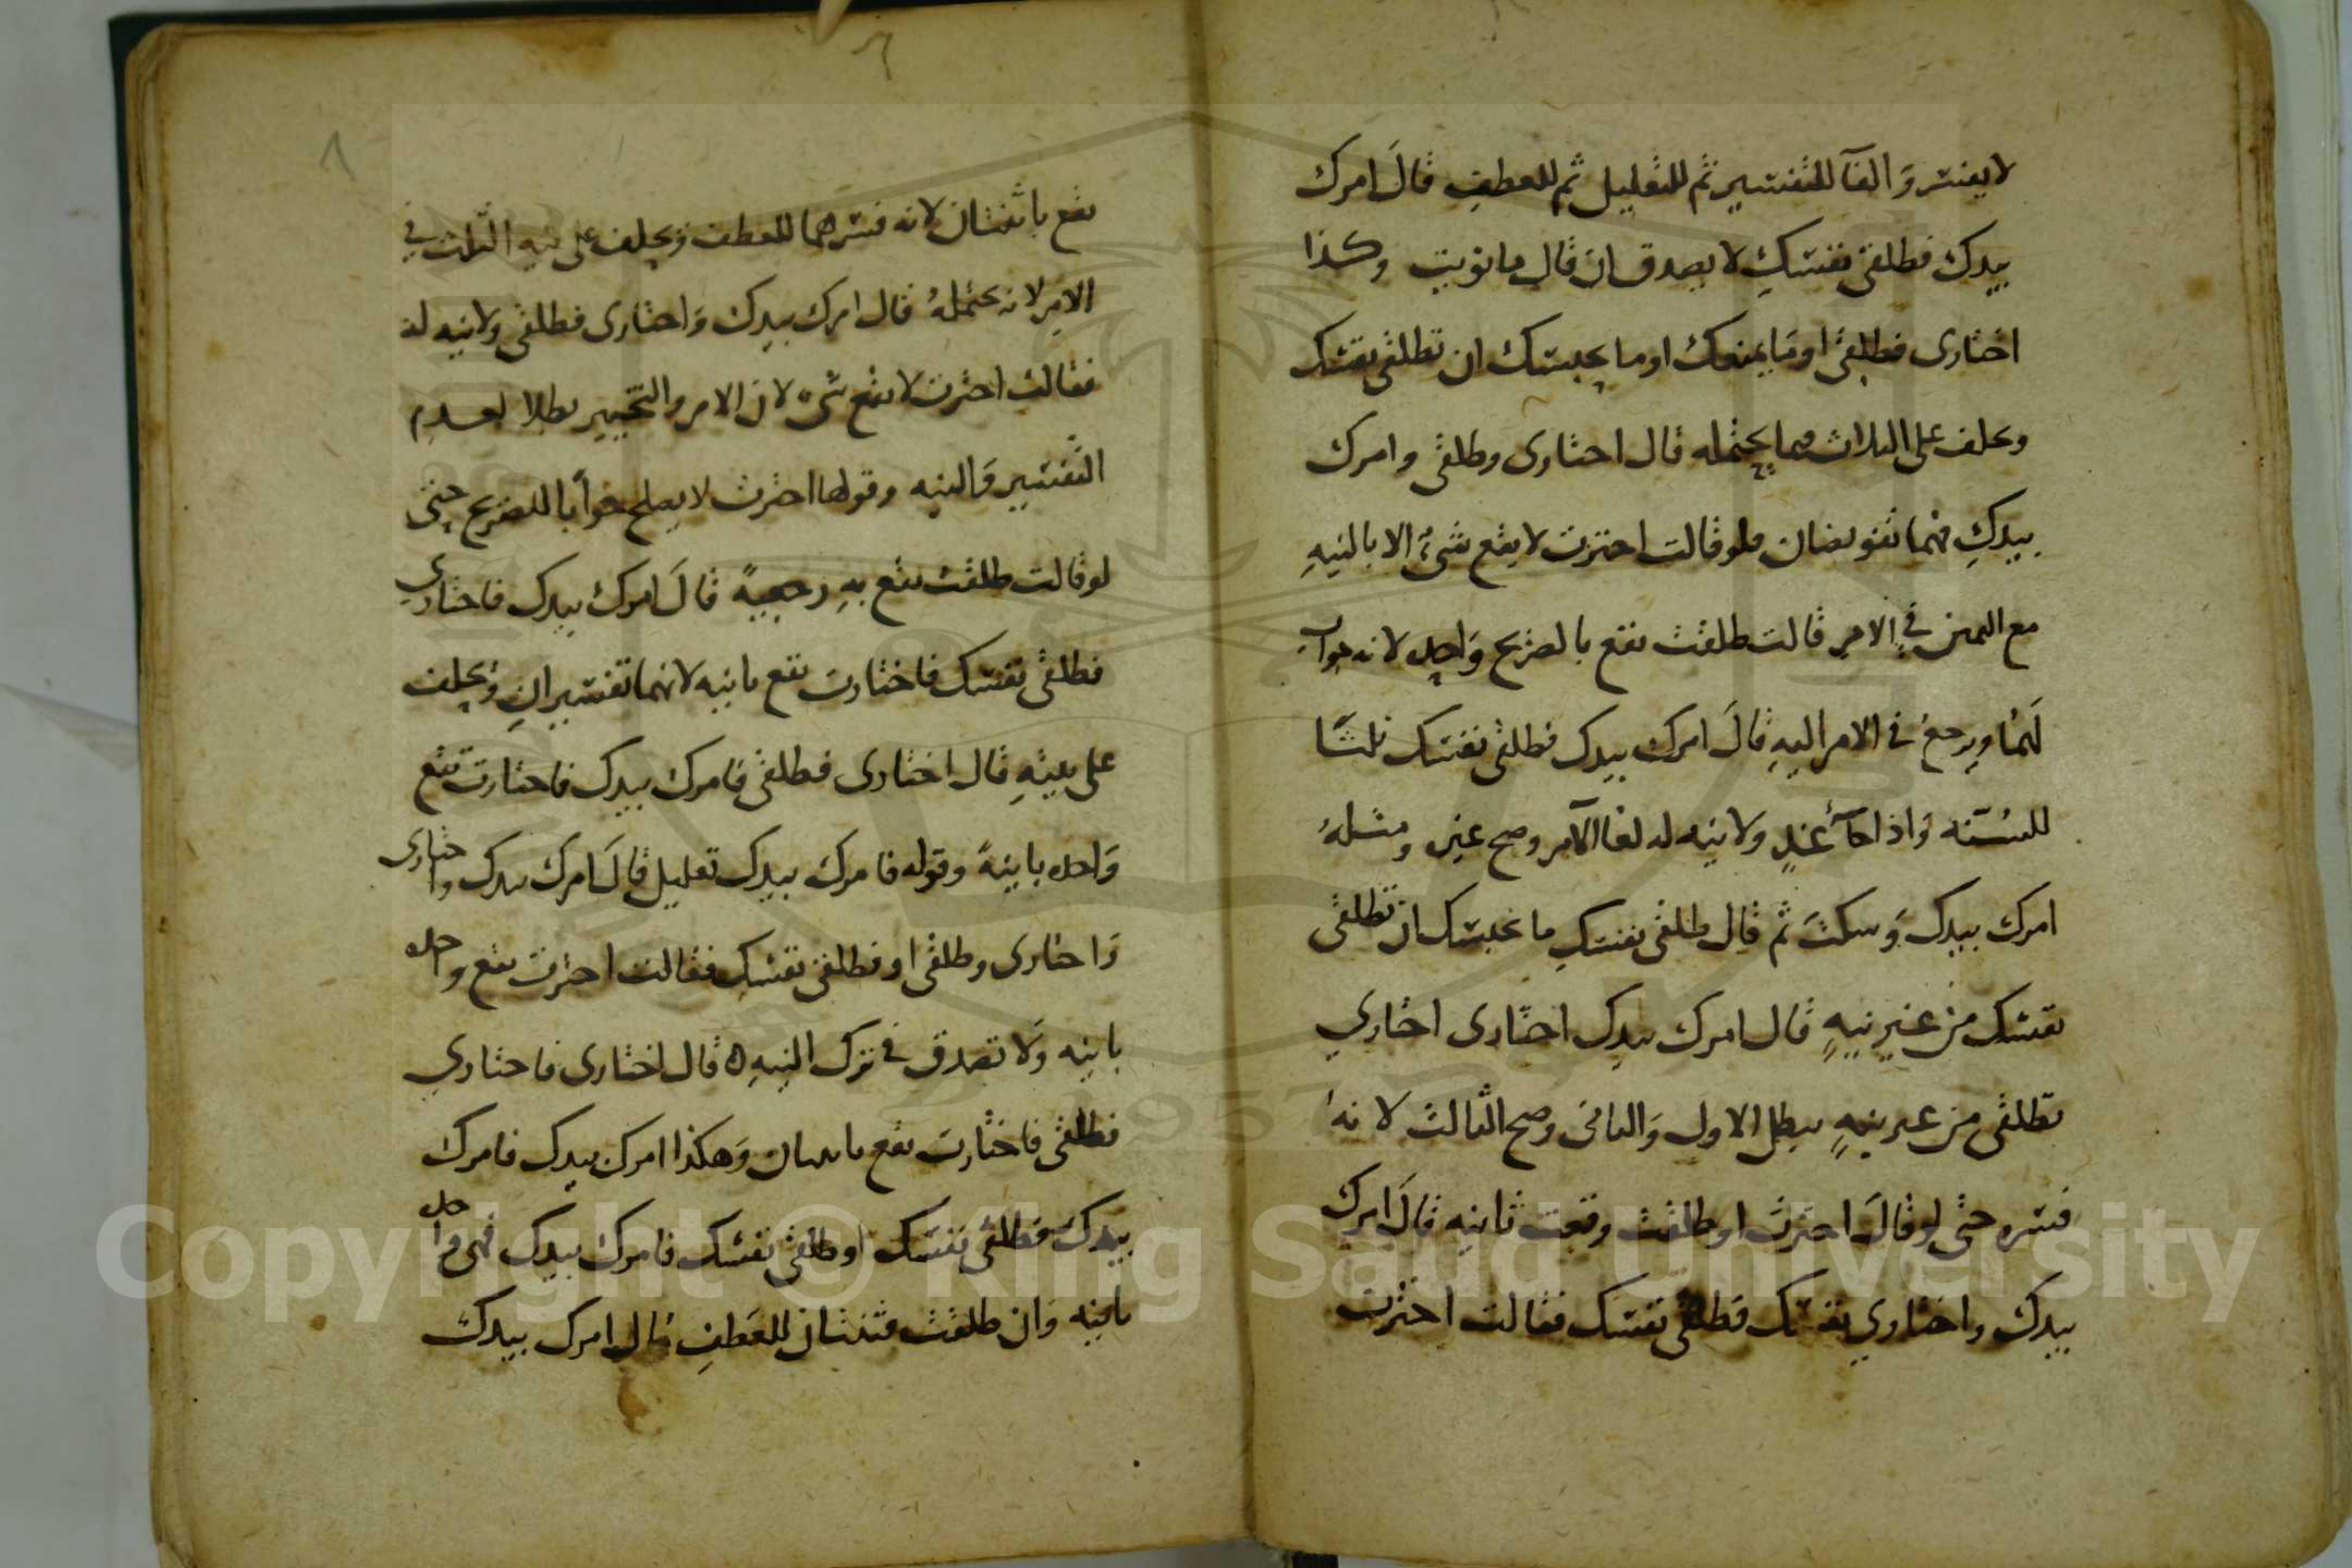 لا يفسر وَالفآ للتفسير ثم للتعليل ثم للعطف قالَ امرك
بيدك فطلقى نفسكِ لا يصدق ان قال ما نويت وكذا
اختارى فطلقى او ما يمنعك او ما يحبسك ان تطلقى نفسك
وحلف على الثلاث فيما يحتمله قال اختارى وطلقى وامرك
بيدكِ فهما تفويضان فلو قالت اخترت لا يقع شىءٌ الا بالنيهِ
مع اليمين فى الامرِ قالت طلقت تقع بالصريح وَاحده لانه جواب
لَهُمَا ويرجعُ فى الامر اليهِ قالَ امرك بيدك فطلقى نفسك ثلثًا
للسُنّه او اذا جآءَ غدٍ ولا نيه له لغا الآمر وصح غيره ومثلهُ
امرك بيدك وَسكتَ ثم قال طلقى نفسكِ ما يحبسك ان تطلقى
نفسك من غير نيهٍ قال امرك بيدك اختارى اختاري
تطلقى من غير نيهٍ يبطل الاول وَالثانى وصح الثالث لانهُ
فسره حتى لو قالَ اخترت او طلقت وقعت ثانيه قالَ امرك
بيدك واختاري نفسك فطلقى نفسك فقالت اخترت
٨
يقع باثنتان لانه فسرهما للعطف ويحلف على نيهِ الثلث فى
الامرِ لانه يحتملهُ قال امرك بيدك وَاختارى فطلقى ولا نيه له
فقالت اخترت لا يقع شىء لان الامر والتخيير بطلا لعدم
التّفسير وَالنيه وقولها اخترت لا يصلح جواَبا للصريح حتى
لو قالت طلقت يقع بهِ رجعيةً قالَ امرك بيدك فاختاري
فطلقى نفسك فاختارت تقع باينه لانهما تفسيرانِ ويحلف
على نيتهِ قال اختارى فطلقى فامرك بيدك فاختارت تقع
وَاحده باينهً وقوله فامرك بيدك تعليل قالَ امرك بيدك واختارى
وَاختارى وطلقى او فطلقى نفسكِ فقالت اخترت تقع واحده
باينه وَلا تصدق فى ترك النيهِ ه قال اختارى فاختاري
فطلقى فاختارت يقع باينتان وَهكذا امرك بيدك فامرك
بيدك فطلقى نفسك او طلقى نفسك فامرك بيدك فهى واحده
باينه وَان طلقت فثنتان للعَطفِ قال امرك بيدك
Copyright © King Saud University
1957